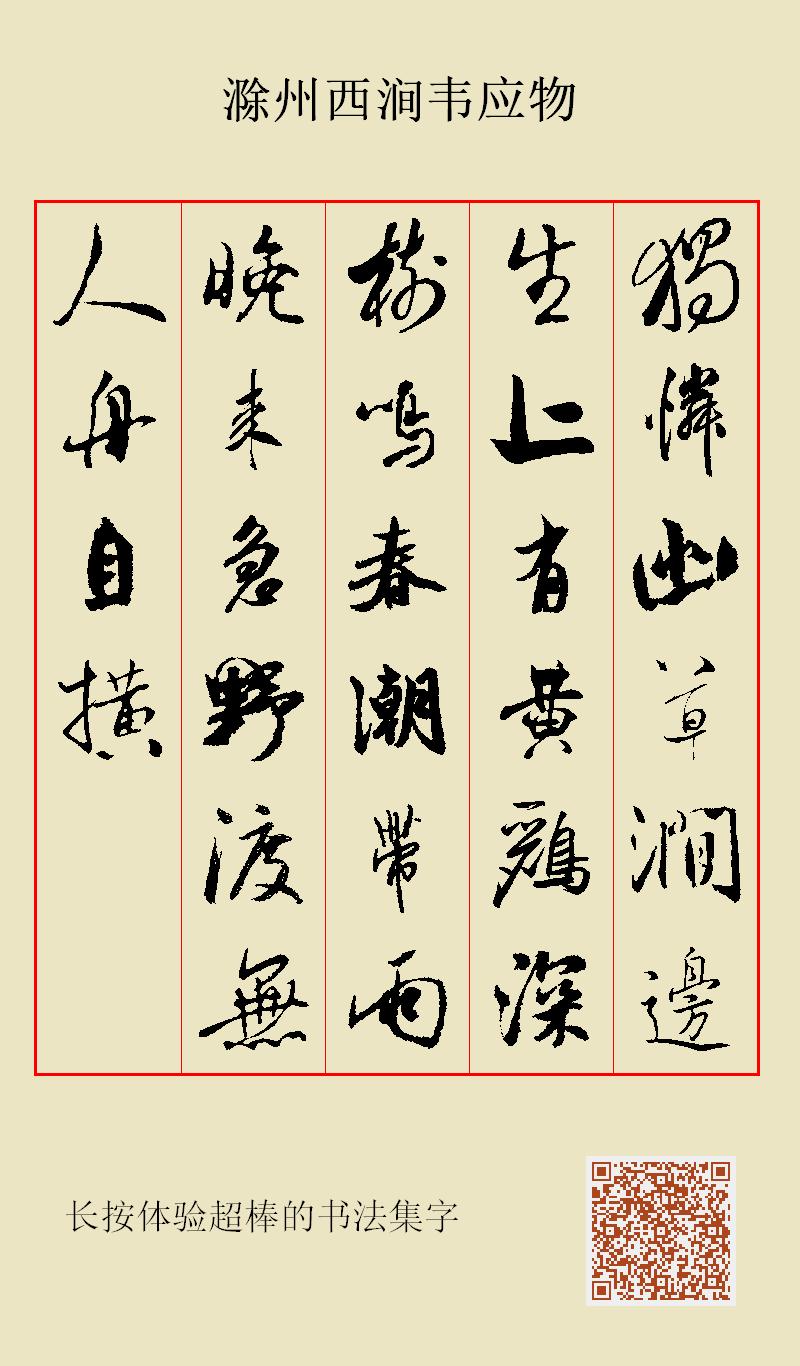 滁州西涧韦应物
獨憐幽草澗邊
生上有黃鸝深
樹鳴春潮帶雨
晚来急野渡無
人舟自橫
长按体验超棒的书法集字